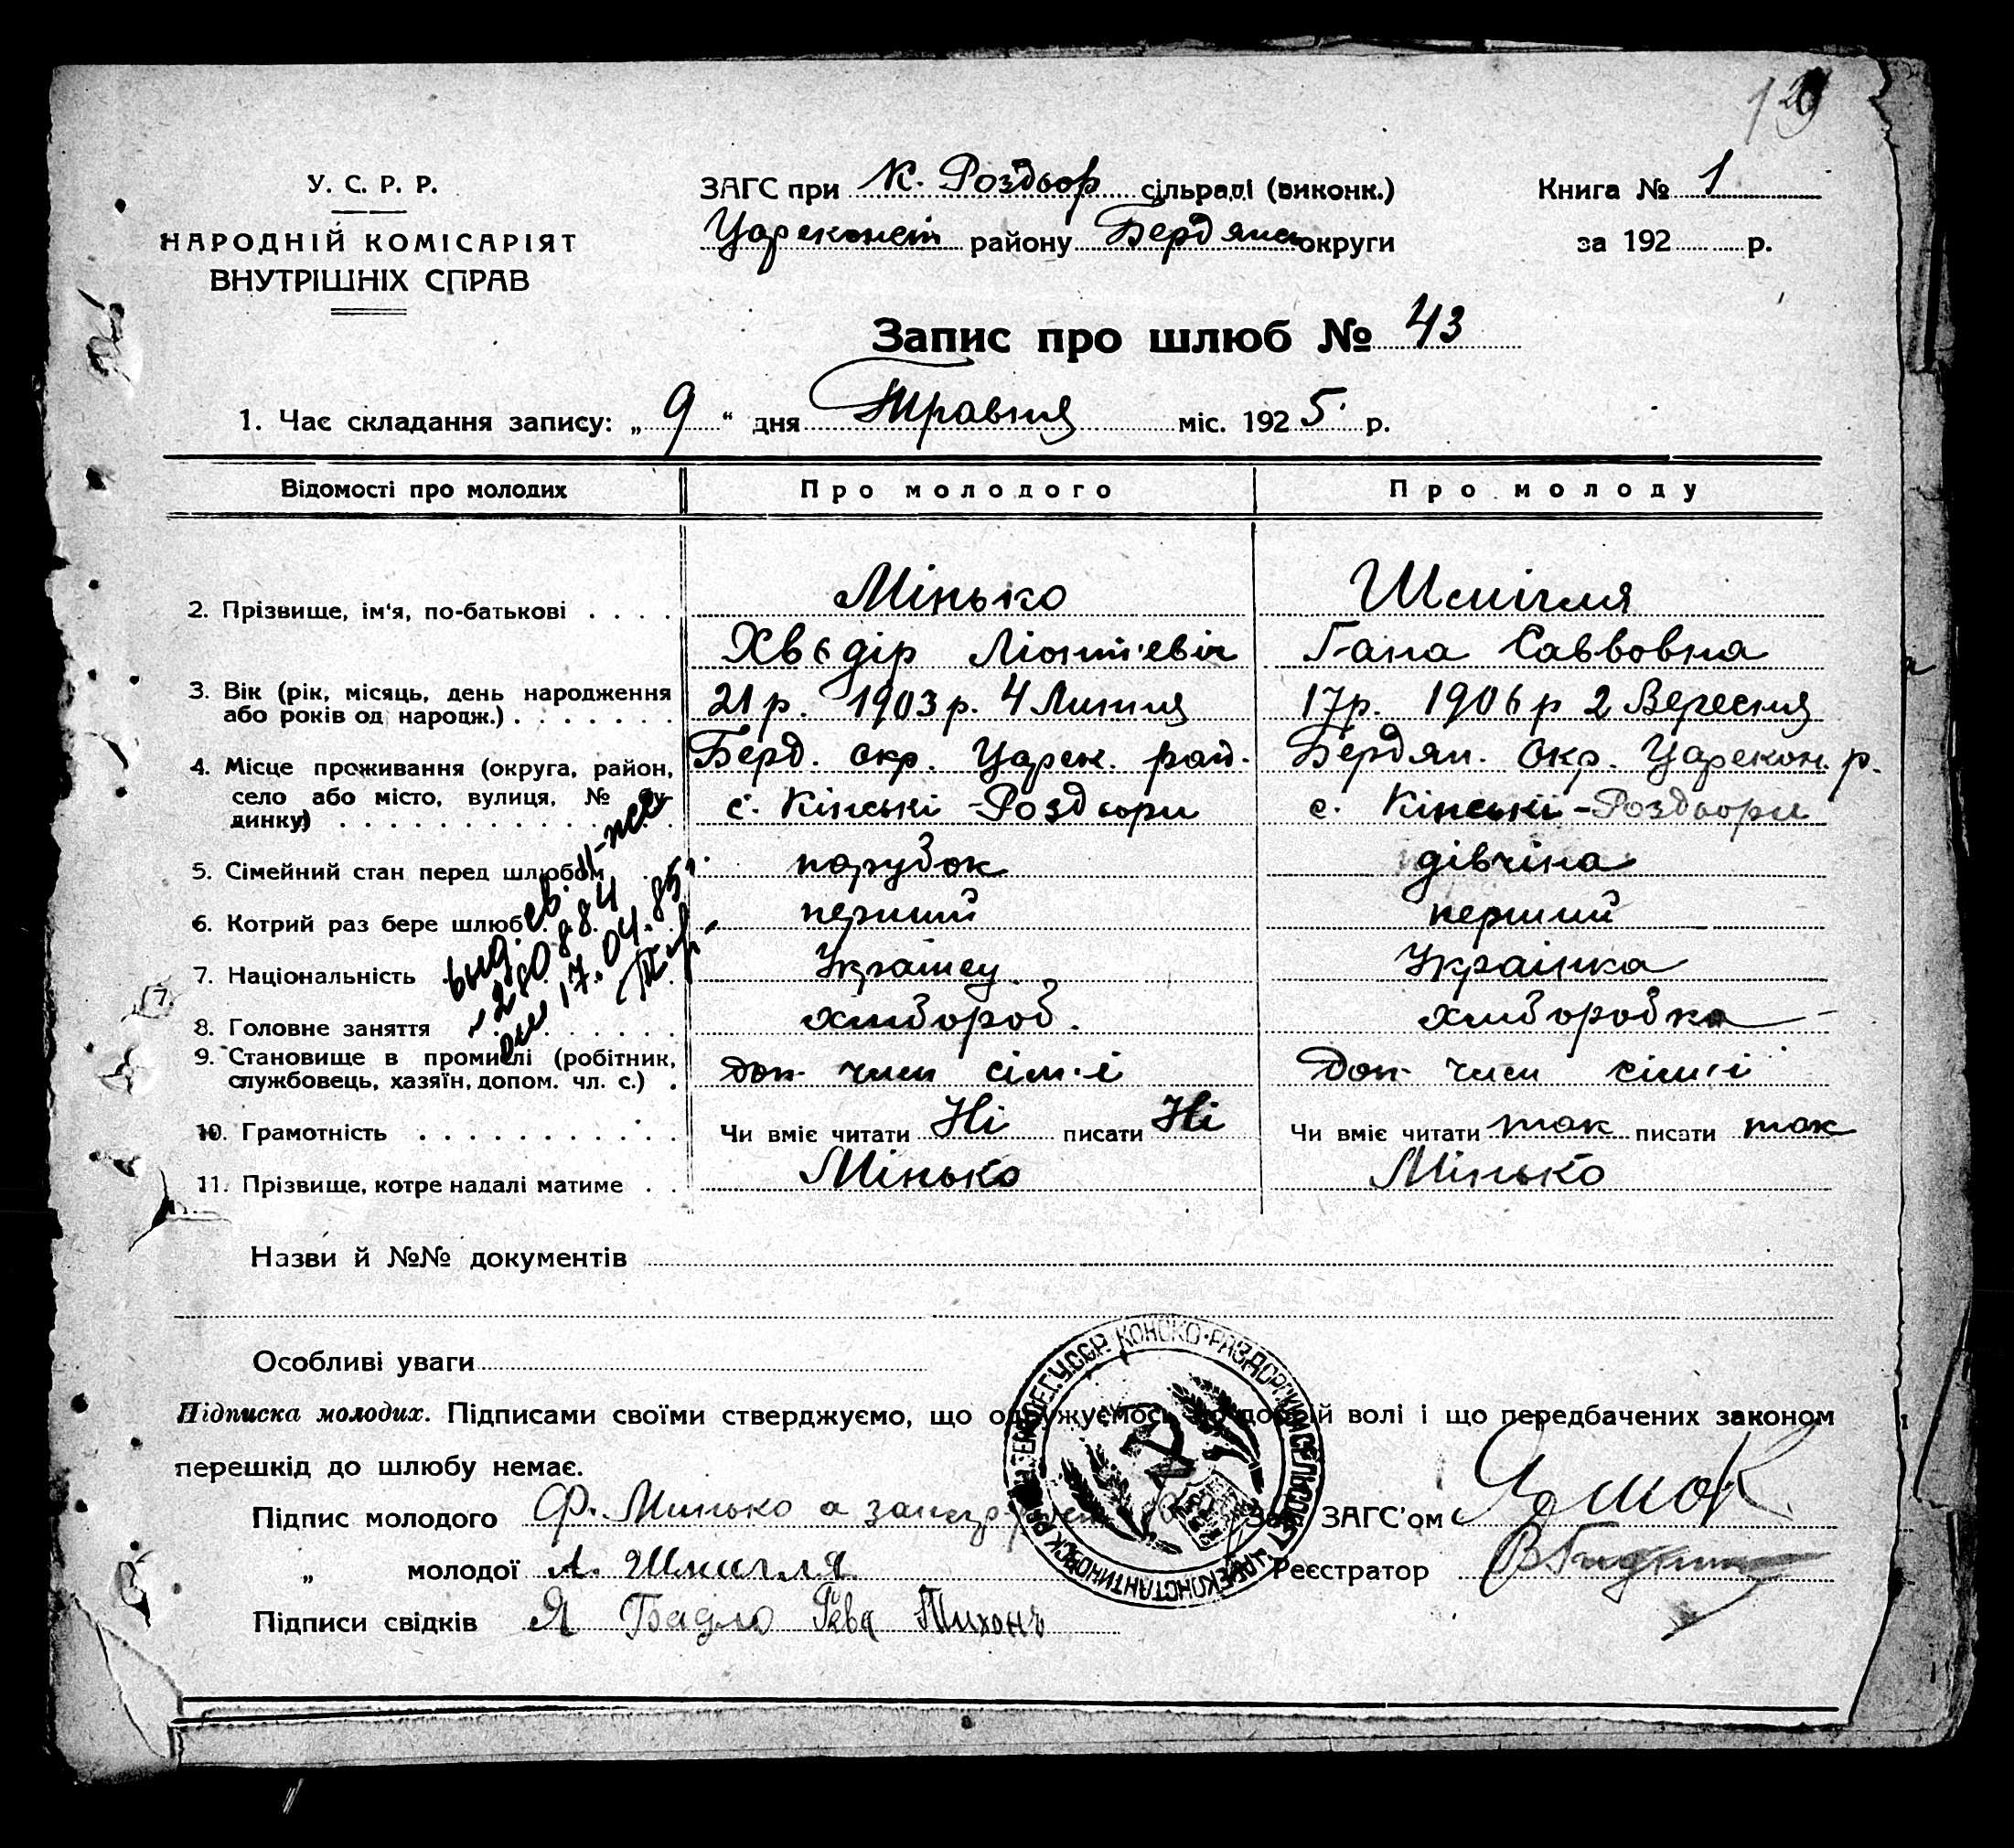 129
У. С. Р. Р.
НАРОДНІЙ КОМІСАРІЯТ
ВНУТРІШНІХ СПРАВ
ЗАГС при К. Роздьор сільраді (виконк.)
Цареконст району Бердянс округи
Книга № 1
за 192 р.
Запис про шлюб № 43
1. Час складання запису: „ 9 “ дня Травня міс. 1925 р.
Відомості про молодих Про молодого Про молоду
2. Прізвище, ім'я, по-батькові Мінько Шмігля
Хвєдір Ліонтієвіч Гана Саввовна
3. Вік (рік, місяць, день народження або років од народж.) 21 р. 1903 р. 4 Липня 17 р. 1906 р 2 Вересня
4. Місце проживання (округа, район, село або місто, вулиця, № будинку) Берд. окр. Царек. рай. Бердян. Окр. Царекон. р.
с. Кінські-Роздьори с. Кінські-Роздьори
5. Сімейний стан перед шлюбом парубок дівчіна
6. Котрий раз бере шлюб перший перший
7. Національність Українец Українка
8. Головне заняття хлібороб. хліборобка
9. Становище в промислі (робітник, службовець, хазяїн, допом. чл. с.) доп. член сім'ї доп. член сім'ї
10. Грамотність Чи вміє читати Ні писати Ні Чи вміє читати так писати так
11. Прізвище, котре надалі матиме Мінько Мінько
выд. св. II-
280884
17.04.85
Назви й №№ документів
Особливі уваги
Підписка молодих. Підписами своїми стверджуємо, що одружуємось по добрій волі і що передбачених законом
перешкід до шлюбу немає.
Підпис молодого Ф. Минько а за Зав. ЗАГС'ом
„ молодої А. Шмигля Реєстратор
Підписи свідків Я Бадло Гева Тихонъ
У.С.С.Р. КОНСКО-РАЗДОРСКИЙ СЕЛЬСОВЕТ ЦАРЕКОНСТАНТИНОВСК